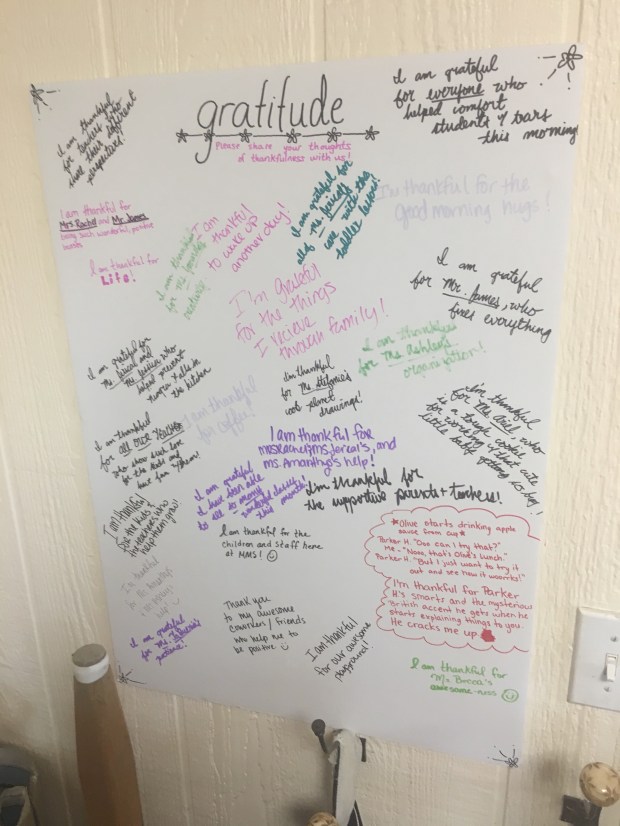 gratitude
Please share your thoughts
of thankfulness with us!
I am grateful
for everyone who
helped comfort
students & tears
this morning!
I am thankful
for teachers who
share their different
perspectives!
I am thankful for
Mrs Rachel and Mr. James
being such wonderful, positive
I am thankful for
Life!
I am thankful
for Ms
I am thankful
to wake up
another day!
I am grateful for
all of
care with the
toddler lovers!
I'm thankful for the
good morning hugs!
I'm grateful
for the things
I recieve
through family!
I am grateful
for Mr. James, who
fixes everything
I am thankful
for Ms Ashley's
organization!
I am grateful for
Ms
who
helped prevent
in
the kitchen
I am thankful
for coffee!
I'm thankful
for Ms Stefanie's
cool planet
drawings!
I'm thankful
for Ms who
is a tough cookie
for working with that
little baby
I am thankful
for all our
who show such love
for the kids and
have fun
I am thankful for
ms Amanthy's help!
I am grateful
I have been able
to
this month!
I'm thankful for
the supportive parents + teachers!
I'm thankful
for the kids &
the teachers who
help them grow!
I am thankful for the
children and staff here
at MMS!
*Olive starts drinking apple
sauce from cup*
Parker H. "Ooo can I try that?"
Me - "Nooo, that's Olive's Lunch."
Parker H. "But I just want to try it
out and see how it woorrks!"
I'm thankful for Parker
H's smarts and the mysterious
British accent he gets when he
starts explaining things to you.
He cracks me up
I'm thankful
I am grateful
for Ms
patience!
Thank you
to my awesome
coworkers / friends
who help me to
be positive
I am thankful
for our awesome
playground!
I am thankful for
Ms Breea's
awesome-niss